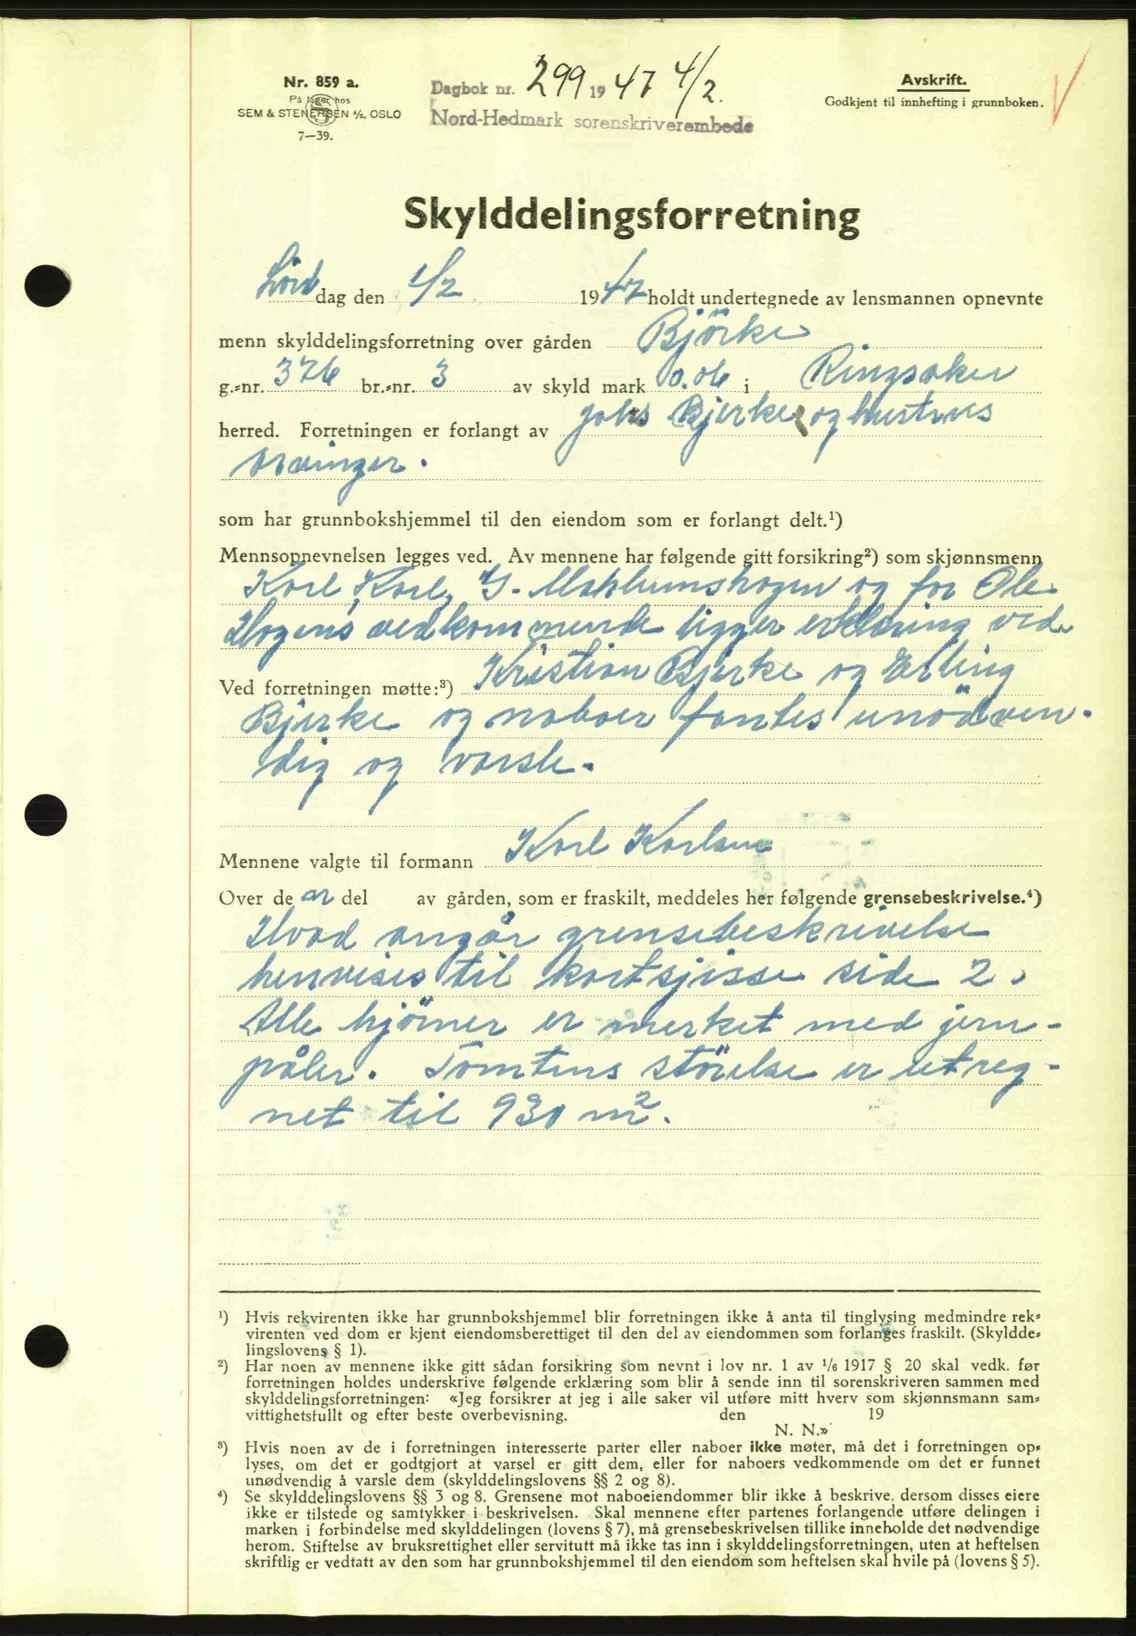 Nr. 859 a.
På lager hos
SEM & STENERSEN A/S. OSLO
7—39.
Dagbok nr. 299 1947 4/2.
Nord-Hedmark sorenskriverembede
Avskrift.
Godkjent til innhefting i grunnboken.
Skylddelingsforretning
Lördag den 1/2 1947 holdt undertegnede av lensmannen opnevnte
menn skylddelingsforretning over gården Björke
g.-nr. 376 br.-nr. 3 av skyld mark 0.06 i Ringsaker
herred. Forretningen er forlangt av Johs Bjerke og hustrues
arvinger.
som har grunnbokshjemmel til den eiendom som er forlangt delt.¹)
Mennsopnevnelsen legges ved. Av mennene har følgende gitt forsikring²) som skjønnsmenn
Karl Karls, G. og for Ole
Hogens vedkommende ligger erklæring ved.
Ved forretningen møtte:³) Kristian Bjerke og Erling
Bjerke og naboer fantes unödven-
dig og varsle.
Mennene valgte til formann Karl Karlsen
Over de an del av gården, som er fraskilt, meddeles her følgende grensebeskrivelse.⁴)
Hvad angår grensebeskrivelse
henvises til kartskjisse side 2.
Alle hjörner er merket med jern-
påler. Tomtens störelse er utreg-
net til 930 m².
¹) Hvis rekvirenten ikke har grunnbokshjemmel blir forretningen ikke å anta til tinglysing medmindre rek-
virenten ved dom er kjent eiendomsberettiget til den del av eiendommen som forlanges fraskilt. (Skyldde-
lingslovens § 1).
²) Har noen av mennene ikke gitt sådan forsikring som nevnt i lov nr. 1 av 1/6 1917 § 20 skal vedk. før
forretningen holdes underskrive følgende erklæring som blir å sende inn til sorenskriveren sammen med
skylddelingsforretningen: «Jeg forsikrer at jeg i alle saker vil utføre mitt hverv som skjønnsmann sam-
vittighetsfullt og efter beste overbevisning. den 19
N. N.»
³) Hvis noen av de i forretningen interesserte parter eller naboer ikke møter, må det i forretningen op-
lyses, om det er godtgjort at varsel er gitt dem, eller for naboers vedkommende om det er funnet
unødvendig å varsle dem (skylddelingslovens §§ 2 og 8).
⁴) Se skylddelingslovens §§ 3 og 8. Grensene mot naboeiendommer blir ikke å beskrive, dersom disses eiere
ikke er tilstede og samtykker i beskrivelsen. Skal mennene efter partenes forlangende utføre delingen i
marken i forbindelse med skylddelingen (lovens § 7), må grensebeskrivelsen tillike inneholde det nødvendige
herom. Stiftelse av bruksrettighet eller servitutt må ikke tas inn i skylddelingsforretningen, uten at heftelsen
skriftlig er vedtatt av den som har grunnbokshjemmel til den eiendom som heftelsen skal hvile på (lovens § 5).